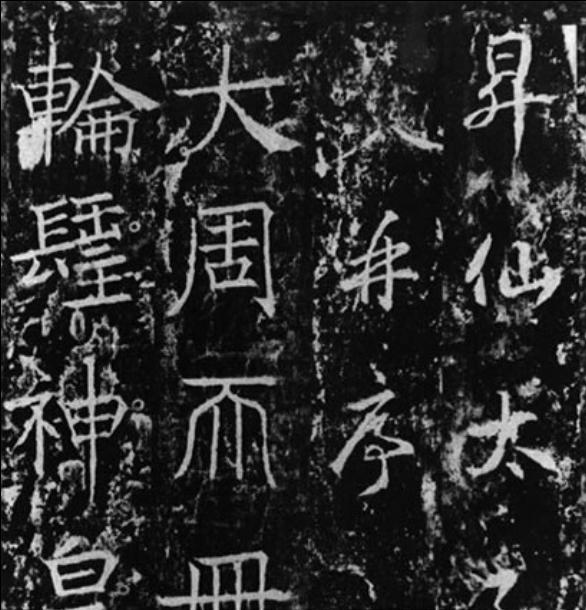 昇仙太
并序
大周𠀑冊
輪𨲢神皇